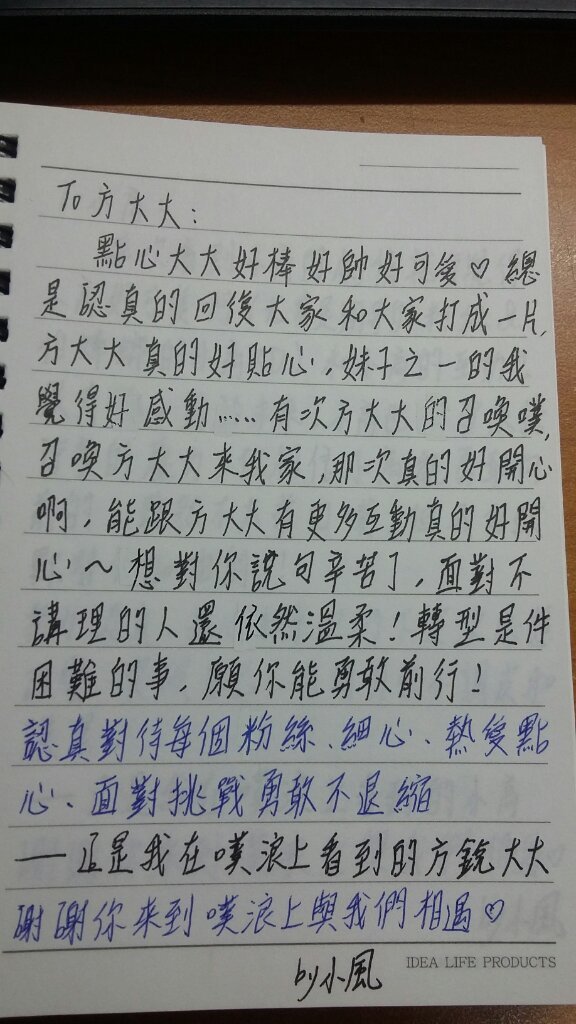 To 方大大:
點心大大好棒好帥好可愛♡ 總
是認真的回復大家和大家打成一片,
方大大真的好貼心,妹子之一的我
覺得好感動…… 有次方大大的召喚噗,
召喚方大大來我家,那次真的好開心
啊,能跟方大大有更多互動真的好開
心~ 想對你說句辛苦了,面對不
講理的人還依然溫柔!轉型是件
困難的事,願你能勇敢前行!
認真對待每個粉絲、細心、熱愛點
心、面對挑戰勇敢不退縮
——這是我在噗浪上看到的方銃大大
謝謝你來到噗浪上與我們相遇♡
by小風
IDEA LIFE PRODUCTS